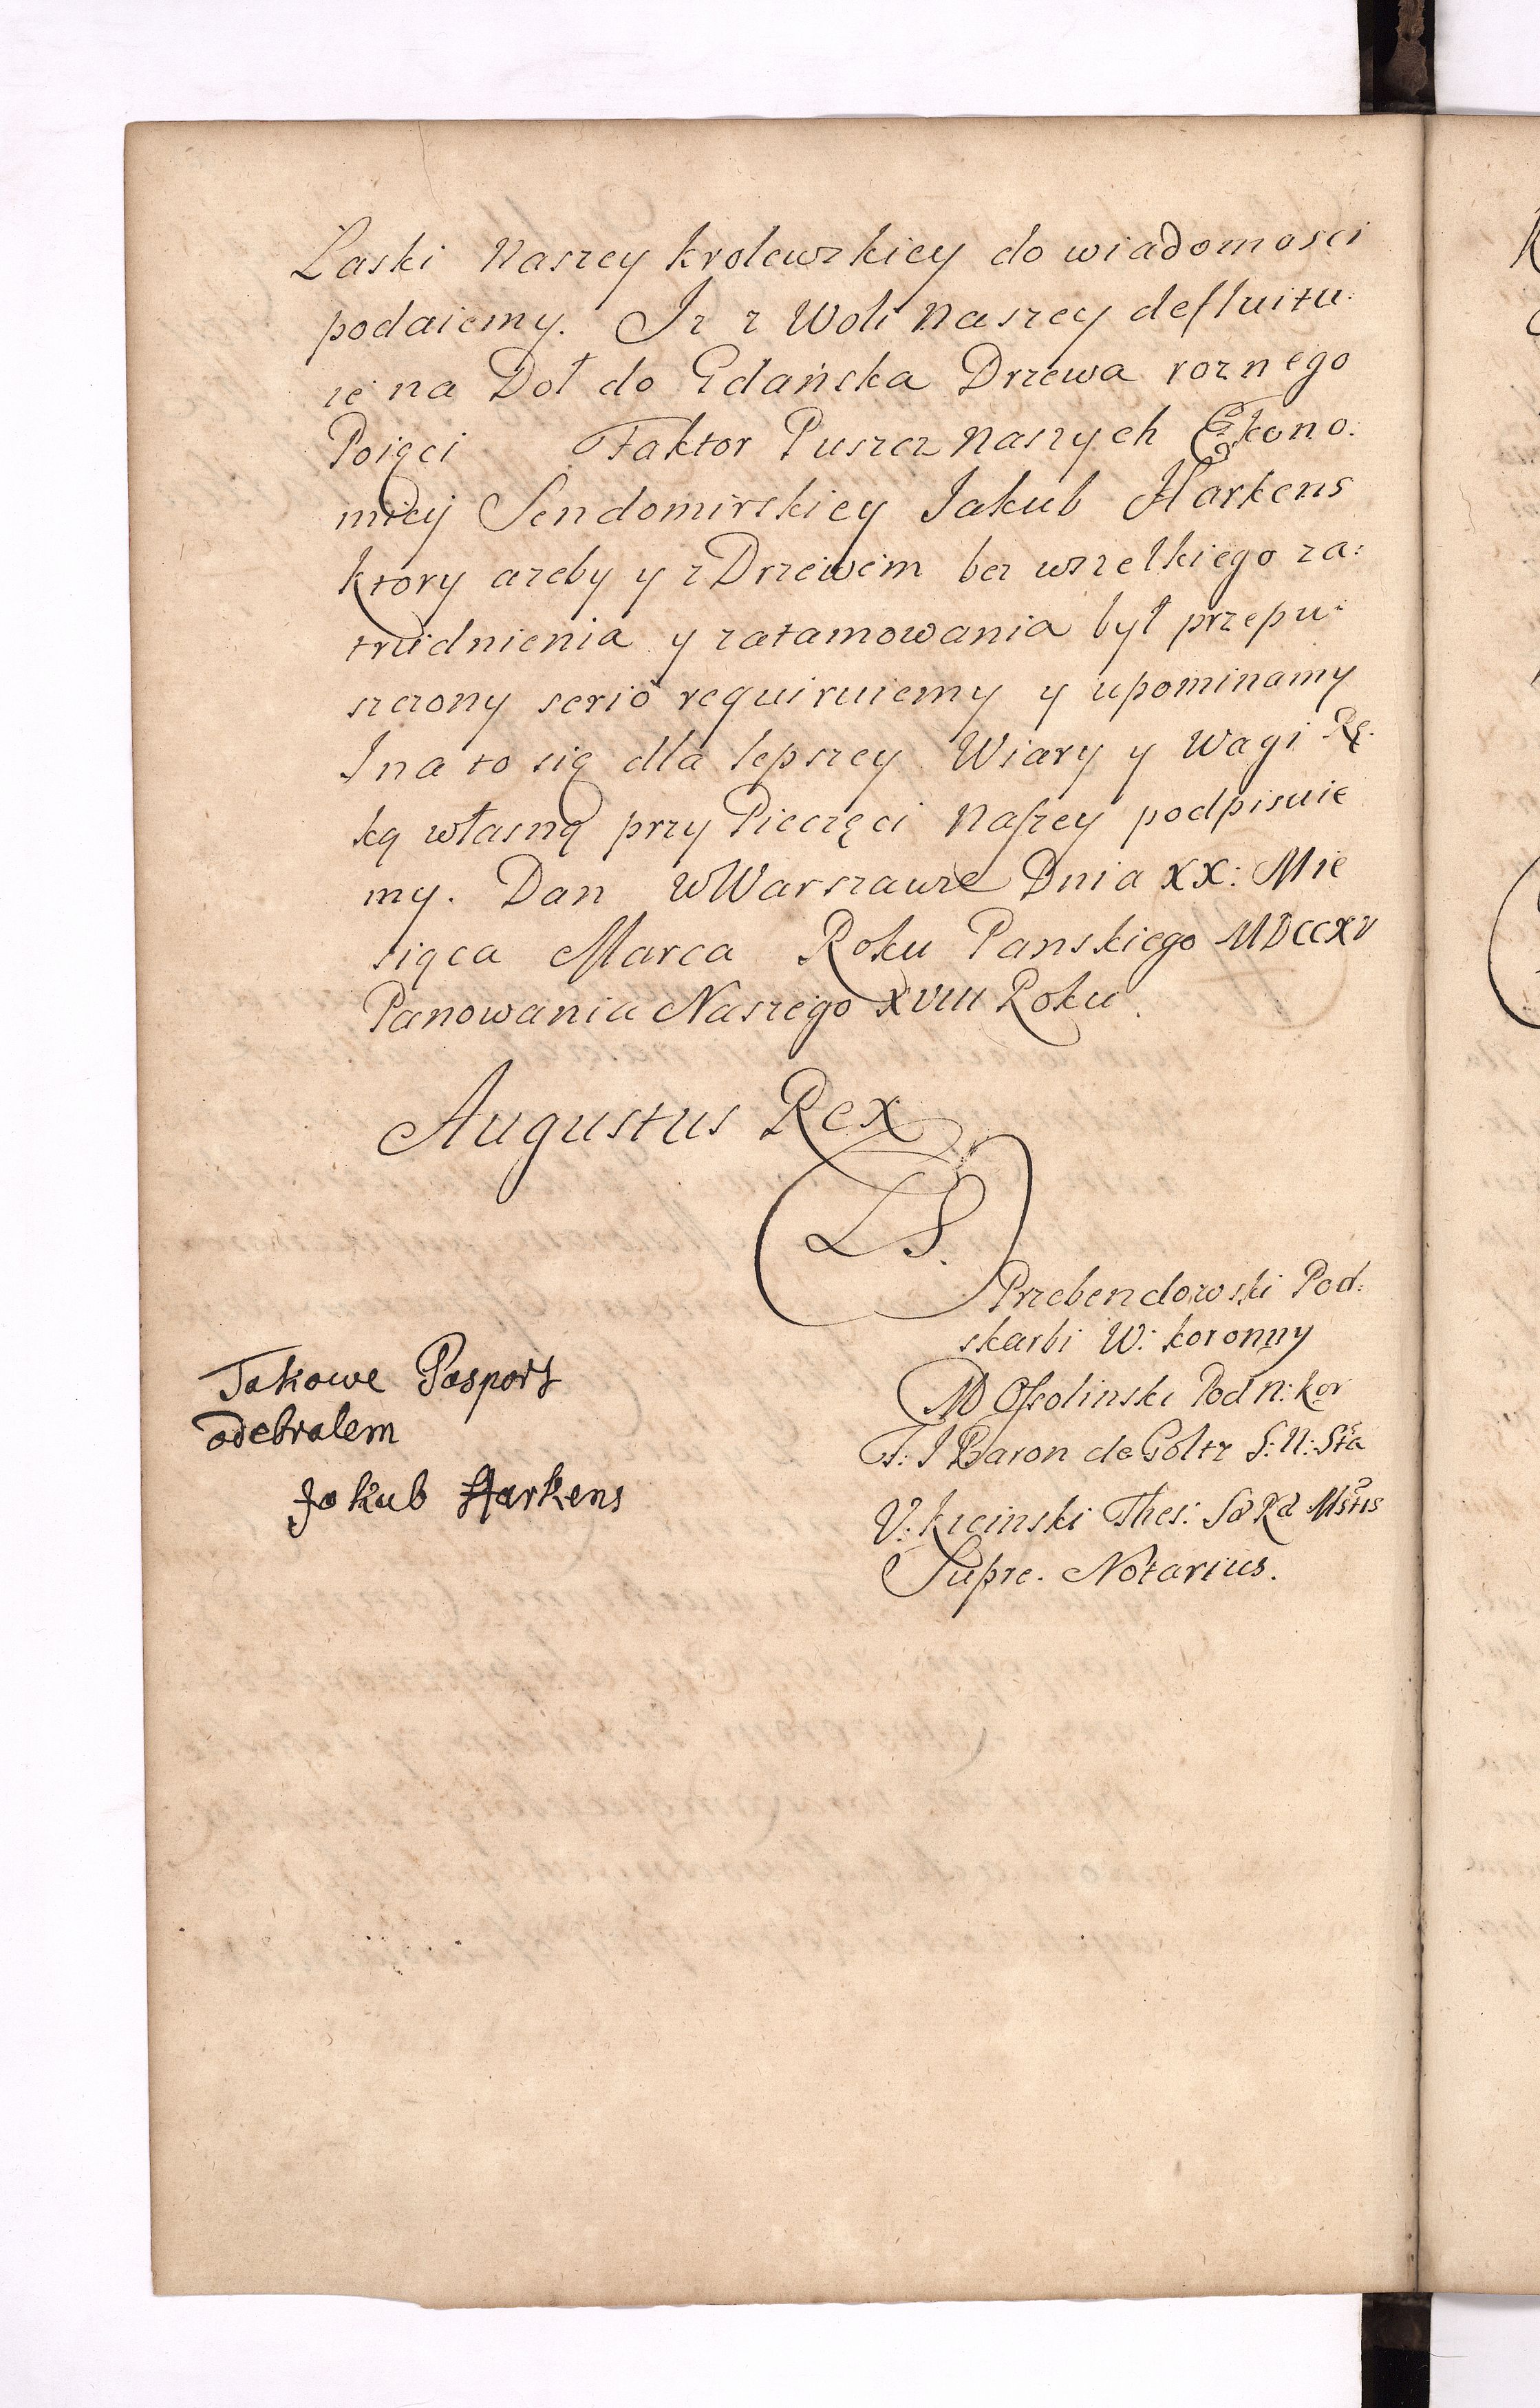 Łaski Naszey krolewskiey do wiadomosci
podaiemy. Iz z Woli Naszey defluitu:
ie na Doł do Gdańska Drzewa roznego
Faktor Puszcz Naszych Ekono:
miey Sendomirskiey Jakub Harkens
ktory azeby y z Drzewem bez wszelkiego za:
trudnienia y zatamowania był przepu:
szczony serio requiruiemy y upominamy
I na to się dla lepszey Wiary y Wagi Rę:
ką własną przy Pieczęci Naszey podpisuie
my. Dan w Warszawie Dnia XX: Mie
siąca Marca Roku Panskiego MDCCXV
Panowania Naszego XVIII Roku.
Augustus Rex
LS.
Przebendowski Pod:
skarbi W: koronny
M Ossolinski Pod N: kor
F: I Baron de Goltz S: N: Sta
V: Kicinski Thes: S R Mstis
Supre. Notarius.
Takowe Pasport
odebralem
Jakub Harkens